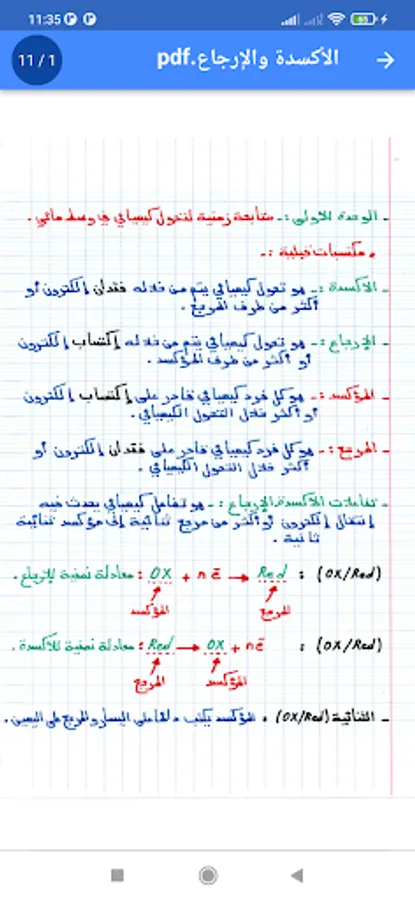 11:35
65
الأكسدة والإرجاع.pdf
11 / 1
- الوحدة الأولى :- متابعة زمنية لتحول كيميائي في وسط مائي.
• مكتسبات قبلية :-
- الأكسدة :- هو تحول كيميائي يتم من خلاله فقدان إلكترون أو
أكثر من طرف المرجع.
- الإرجاع :- هو تحول كيميائي يتم من خلاله إكتساب إلكترون
أو أكثر من طرف المؤكسد.
- المؤكسد :- هو كل فرد كيميائي قادر على إكتساب إلكترون
أو أكثر خلال التحول الكيميائي.
- المرجع :- هو كل فرد كيميائي قادر على فقدان إلكترون أو
أكثر خلال التحول الكيميائي.
- تفاعلات الأكسدة الإرجاع :- هو تفاعل كيميائي يحدث فيه
إنتقال إلكترون أو أكثر من مرجع ثنائية إلى مؤكسد ثنائية
ثانية.
(OX/Red) : OX + n e⁻ → Red : معادلة نصفية للإرجاع.
المؤكسد المرجع
(OX/Red) : Red → OX + n e⁻ : معادلة نصفية للأكسدة.
المرجع المؤكسد
- الثنائية (OX/Red) ، المؤكسد يكتب على اليسار والمرجع على اليمين.